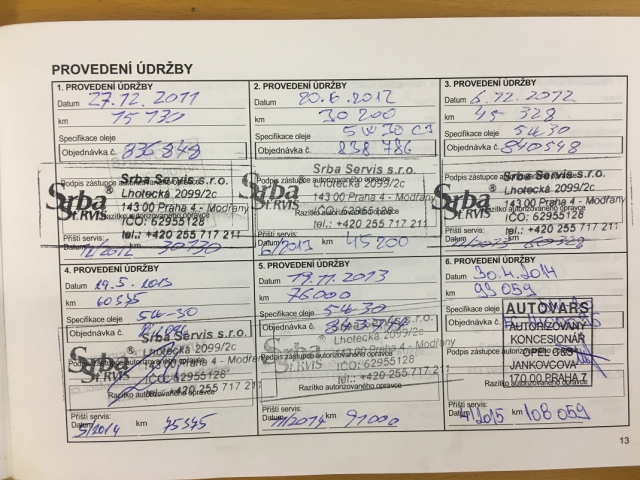 PROVEDENÍ ÚDRŽBY
1. PROVEDENÍ ÚDRŽBY
Datum 27.12.2011
km 15 130
Specifikace oleje
Objednávka č. 836 848
Podpis zástupce autorizovaného opravce
Srba Servis s.r.o.
Lhotecká 2099/2c
143 00 Praha 4 - Modřany
Razítko autorizovaného opravce
IČO: 62955128
tel.: +420 255 717 211
Příští servis:
Datum 12/2012 km 30130
2. PROVEDENÍ ÚDRŽBY
Datum 20.6.2012
km 30 200
Specifikace oleje 5W30 C3
Objednávka č. 838 786
Podpis zástupce autorizovaného opravce
Srba Servis s.r.o.
Lhotecká 2099/2c
143 00 Praha 4 - Modřany
Razítko autorizovaného opravce
IČO: 62955128
tel.: +420 255 717 211
Příští servis:
Datum 6/2013 km 45200
3. PROVEDENÍ ÚDRŽBY
Datum 6.12.2012
km 45 328
Specifikace oleje 5W-30
Objednávka č. 840548
Podpis zástupce autorizovaného opravce
Srba Servis s.r.o.
Lhotecká 2099/2c
143 00 Praha 4 - Modřany
Razítko autorizovaného opravce
IČO: 62955128
tel.: +420 255 717 211
Příští servis:
Datum 12/2013 km 60328
4. PROVEDENÍ ÚDRŽBY
Datum 29.5.2013
km 60545
Specifikace oleje 5W-30
Objednávka č.
Srba Servis s.r.o.
Lhotecká 2099/2c
Podpis zástupce autorizovaného opravce
143 00 Praha 4 - Modřany
IČO: 62955128
tel.: +420 255 717 211
Razítko autorizovaného opravce
Příští servis:
Datum 5/2014 km 75545
5. PROVEDENÍ ÚDRŽBY
Datum 19.11.2013
km 76000
Specifikace oleje 5W-30
Objednávka č.
Srba Servis s.r.o.
Lhotecká 2099/2c
143 00 Praha 4 - Modřany
Podpis zástupce autorizovaného opravce
IČO: 62955128
tel.: +420 255 717 211
Razítko autorizovaného opravce
Příští servis:
Datum 11/2014 km 91000
6. PROVEDENÍ ÚDRŽBY
Datum 30.4.2014
km 93 059
Specifikace oleje
AUTOVARS
Objednávka č.
AUTORIZOVANÝ
KONCESIONÁŘ
Podpis zástupce autorizovaného opravce
OPEL
JANKOVCOVA
170 00 PRAHA 7
Razítko autorizovaného opravce
Příští servis:
Datum 4/2015 km 108 059
13